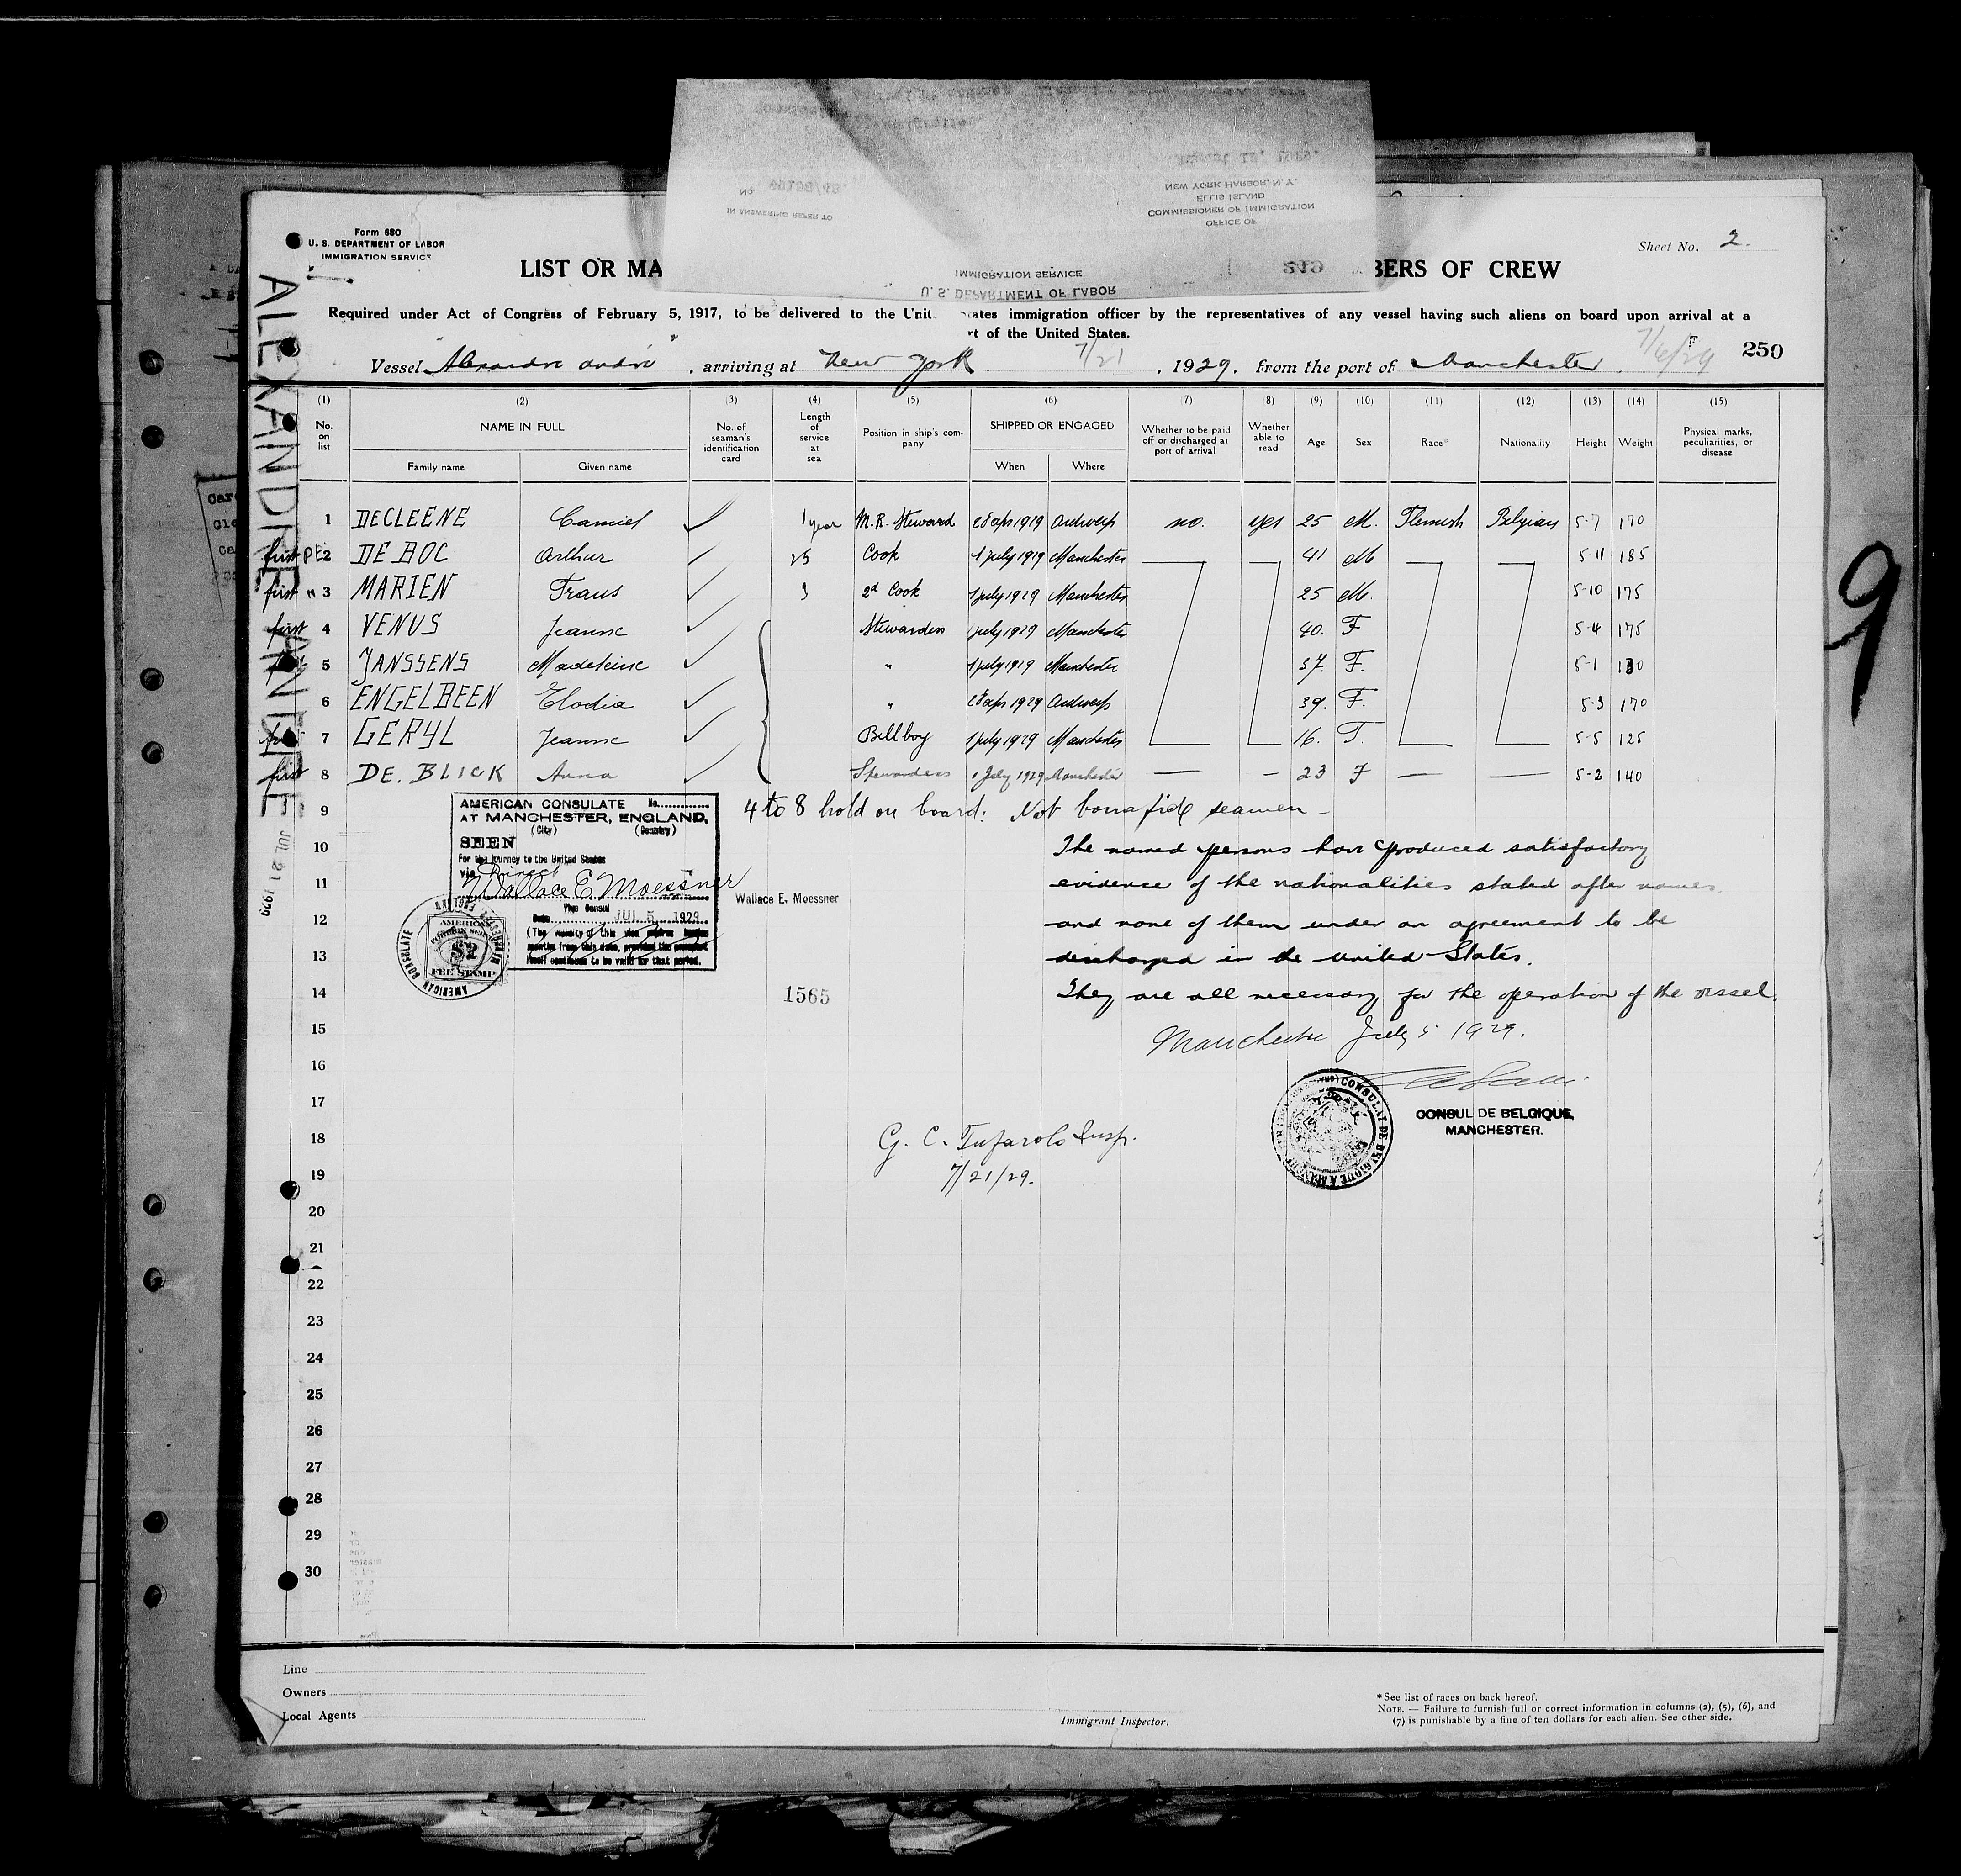 OFFICE OF
COMMISSIONER OF IMMIGRATION
ELLIS ISLAND
NEW YORK HARBOR, N.Y.
IN ANSWERING REFER TO
No.
U. S. DEPARTMENT OF LABOR
IMMIGRATION SERVICE
Form 680
U. S. DEPARTMENT OF LABOR
IMMIGRATION SERVICE
Sheet No. 2.
LIST OR MA BERS OF CREW
249
Required under Act of Congress of February 5, 1917, to be delivered to the Unit ates immigration officer by the representatives of any vessel having such aliens on board upon arrival at a
rt of the United States.
Vessel "Alexandre André", arriving at New York 7/21, 1929, from the port of Manchester. 7/6/29
250
ALEXANDRE ANDRE JUL 21 1929
(1) (2) (3) (4) (5) (6) (7) (8) (9) (10) (11) (12) (13) (14) (15)
No. on list NAME IN FULL Family name Given name No. of seaman's identification card Length of service at sea Position in ship's company SHIPPED OR ENGAGED When Where Whether to be paid off or discharged at port of arrival Whether able to read Age Sex Race* Nationality Height Weight Physical marks, peculiarities, or disease
1 DECLEENE Camiel ✓ 1 year M.R. Steward 28 apr 1929 Antwerp no. yes 25 M. Flemish Belgian 5-7 170
first 2 DE BOC Arthur 25 Cook 1 july 1929 Manchester 41 M 5-11 185
first " 3 MARIEN Frans ✓ 3 2d Cook 1 july 1929 Manchester 25 M. 5-10 175
first 4 VENUS Jeanne ✓ Stewardess 1 july 1929 Manchester 40. F 5-4 175
5 JANSSENS Madeleine ✓ " 1 july 1929 Manchester 37. F. 5-1 130
6 ENGELBEEN Elodia ✓ " 28 apr 1929 Antwerp 39. F. 5-3 170
7 GERYL Jeanne ✓ Bellboy 1 july 1929 Manchester 16. F. 5-5 125
first 8 DE. BLICK Anna ✓ Stewardess 1 July 1929 Manchester — — 23 F — — 5-2 140
9 4 to 8 hold on board: Not bona fide seamen —
10 The named persons have produced satisfactory
11 evidence of the nationalities stated after names
12 and none of them under an agreement to be
13 discharged in the United States.
14 They are all necessary for the operation of the vessel.
15 Manchester July 5 1929.
16
17
18
19
20
21
22
23
24
25
26
27
28
29
30
AMERICAN CONSULATE No.
AT MANCHESTER, ENGLAND,
(City) (Country)
SEEN
For the journey to the United States
via Direct
Wallace E. Moessner
Wallace E. Moessner
Vice Consul
Date JUL 5 1929
(The validity of this visa expires
months from this date, provided the passport
itself continues to be valid for that period.
AMERICAN CONSULATE MANCHESTER ENGLAND
AMERICAN FOREIGN SERVICE
$2
FEE STAMP
1565
CONSUL DE BELGIQUE,
MANCHESTER.
CONSULAT DE BELGIQUE A MANCHESTER
G. C. Tufarolo Insp.
7/21/29.
9
Line
Owners
Local Agents
Immigrant Inspector.
*See list of races on back hereof.
NOTE. — Failure to furnish full or correct information in columns (2), (5), (6), and
(7) is punishable by a fine of ten dollars for each alien. See other side.